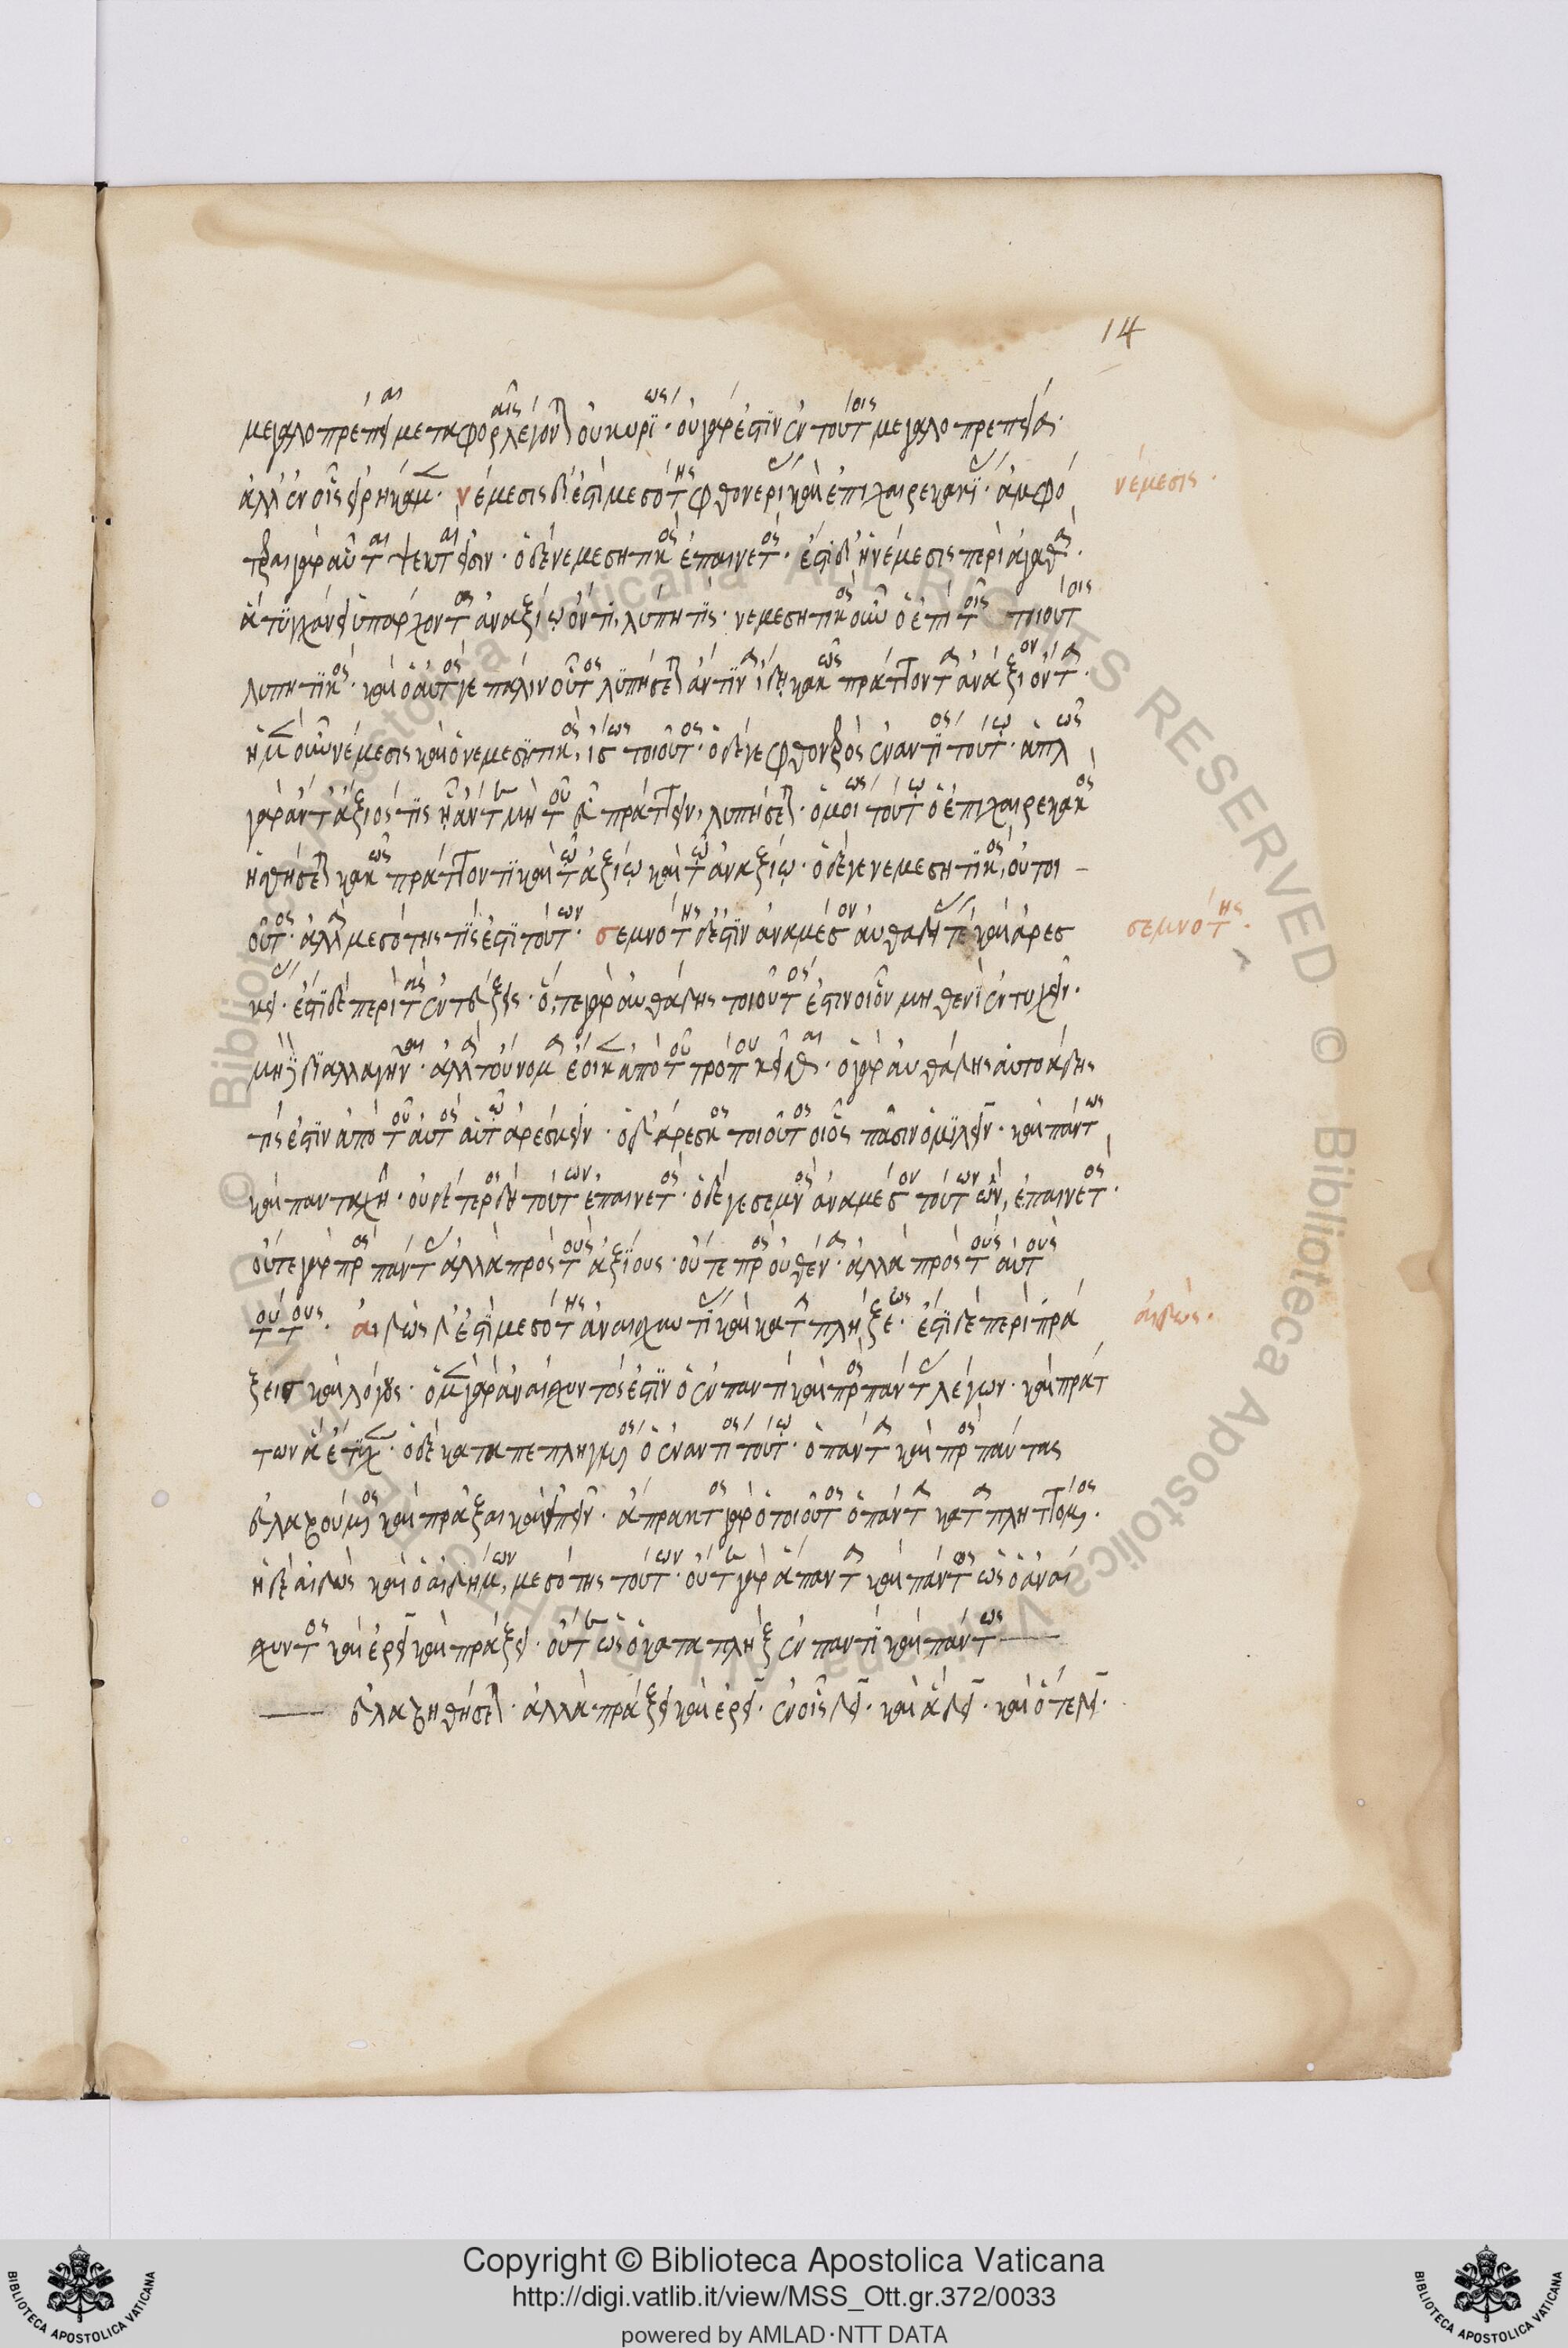 14
μεγαλοπρέπειαι μεταφοραῖς λέγονται οὐ κυρίως· οὐ γάρ ἐστιν ἐν τούτοις μεγαλοπρέπεια·
ἀλλ' ἐν οἷς εἰρήκαμεν· νέμεσις δ' ἐστὶ μεσότης φθονερίας καὶ ἐπιχαιρεκακίας· ἀμφό
νέμεσις·
τεραι γὰρ αὗται ψεκταί εἰσιν· ὁ δὲ νεμεσητικὸς ἐπαινετός· ἔστι δ' ἡ νέμεσις περὶ ἀγαθὰ·
ἃ τυγχάνει ὑπάρχοντα ἀναξίῳ ὄντι, λύπη τίς· νεμεσητικὸς οὖν ὁ ἐπὶ τοῖς τοιούτοις
λυπητικός· καὶ ὁ αὐτός γε πάλιν οὗτος λυπήσεται ἄν τινα ἴδῃ κακῶς πράττοντα ἀνάξιον ὄντα·
ἡ μὲν οὖν νέμεσις καὶ ὁ νεμεσητικὸς, ἴσως τοιοῦτος· ὁ δέ γε φθονερὸς ἐναντίος τούτῳ· ἁπλῶς
γὰρ ἄν τε ἄξιός τις ᾖ ἄν τε μὴ τοῦ εὖ πράττειν, λυπήσεται· ὁμοίως τούτῳ ὁ ἐπιχαιρέκακος
ἡσθήσεται κακῶς πράττοντι καὶ τῷ ἀξίῳ καὶ τῷ ἀναξίῳ· ὁ δέ γε νεμεσητικὸς, οὔτοι
οὗτος· ἀλλὰ μεσότης τίς ἐστι τούτων· σεμνότης δέ ἐστιν ἀνὰ μέσον αὐθαδείας τε καὶ ἀρεσ
σεμνότης·
κείας· ἔστι δὲ περὶ τὰς ἐντεύξεις· ὅ, τε γὰρ αὐθάδης τοιοῦτος ἐστιν οἷον μηθενὶ ἐντυχεῖν·
μὴ δὲ διαλλαγῆναι· ἀλλὰ τοὔνομα ἔοικεν ἀπὸ τοῦ τρόπου κεῖσθαι· ὁ γὰρ αὐθάδης αὐτοάδης
τίς ἐστιν ἀπὸ τοῦ αὐτὸς αὑτῷ ἀρέσκειν· ὁ δ' ἄρεσκος τοιοῦτος οἷος πᾶσιν ὁμιλεῖν· καὶ πάντως
καὶ πανταχῆ· οὐδέτερος δὴ τούτων ἐπαινετὸς· ὁ δέ γε σεμνὸς ἀνὰ μέσον τούτων ὢν, ἐπαινετὸς·
οὔτε γὰρ πρὸς πάντας ἀλλὰ πρὸς τοὺς ἀξίους· οὔτε πρὸς οὐθένα· ἀλλὰ πρὸς τοὺς αὐτοὺς
τούτους· αἰδὼς δ' ἐστὶ μεσότης ἀναισχυντίας καὶ καταπλήξεως· ἔστι δὲ περὶ πρά
αἰδώς·
ξεις καὶ λόγους· ὁ μὲν γὰρ ἀναίσχυντός ἐστιν ὁ ἐν παντὶ καὶ πρὸς πάντας λέγων· καὶ πράτ
των ἃ ἔτυχεν· ὁ δὲ καταπεπληγμένος ὁ ἐναντίος τούτῳ· ὁ πάντα καὶ πρὸς πάντας
εὐλαβούμενος καὶ πρᾶξαι καὶ εἰπεῖν· ἄπρακτος γὰρ ὁ τοιοῦτος ὁ πάντα καταπληττόμενος·
ἡ δὲ αἰδὼς καὶ ὁ αἰδήμων, μεσότης τούτων· οὔτε γὰρ ἅπαντα καὶ πάντως ὡς ὁ ἀναί
σχυντος καὶ ἐρεῖ καὶ πράξει· οὔτε ὡς ὁ καταπλὴξ ἐν παντὶ καὶ πάντως
εὐλαβηθήσεται· ἀλλὰ πράξει καὶ ἐρεῖ· ἐν οἷς δεῖ· καὶ ἃ δεῖ· καὶ ὅτε δεῖ·
© Biblioteca Apostolica Vaticana ALL RIGHTS RESERVED © Biblioteca Apostolica Vaticana ALL RIGHTS RESERVED
Copyright © Biblioteca Apostolica Vaticana
http://digi.vatlib.it/view/MSS_Ott.gr.372/0033
powered by AMLAD·NTT DATA
BIBLIOTECA APOSTOLICA VATICANA
BIBLIOTECA APOSTOLICA VATICANA